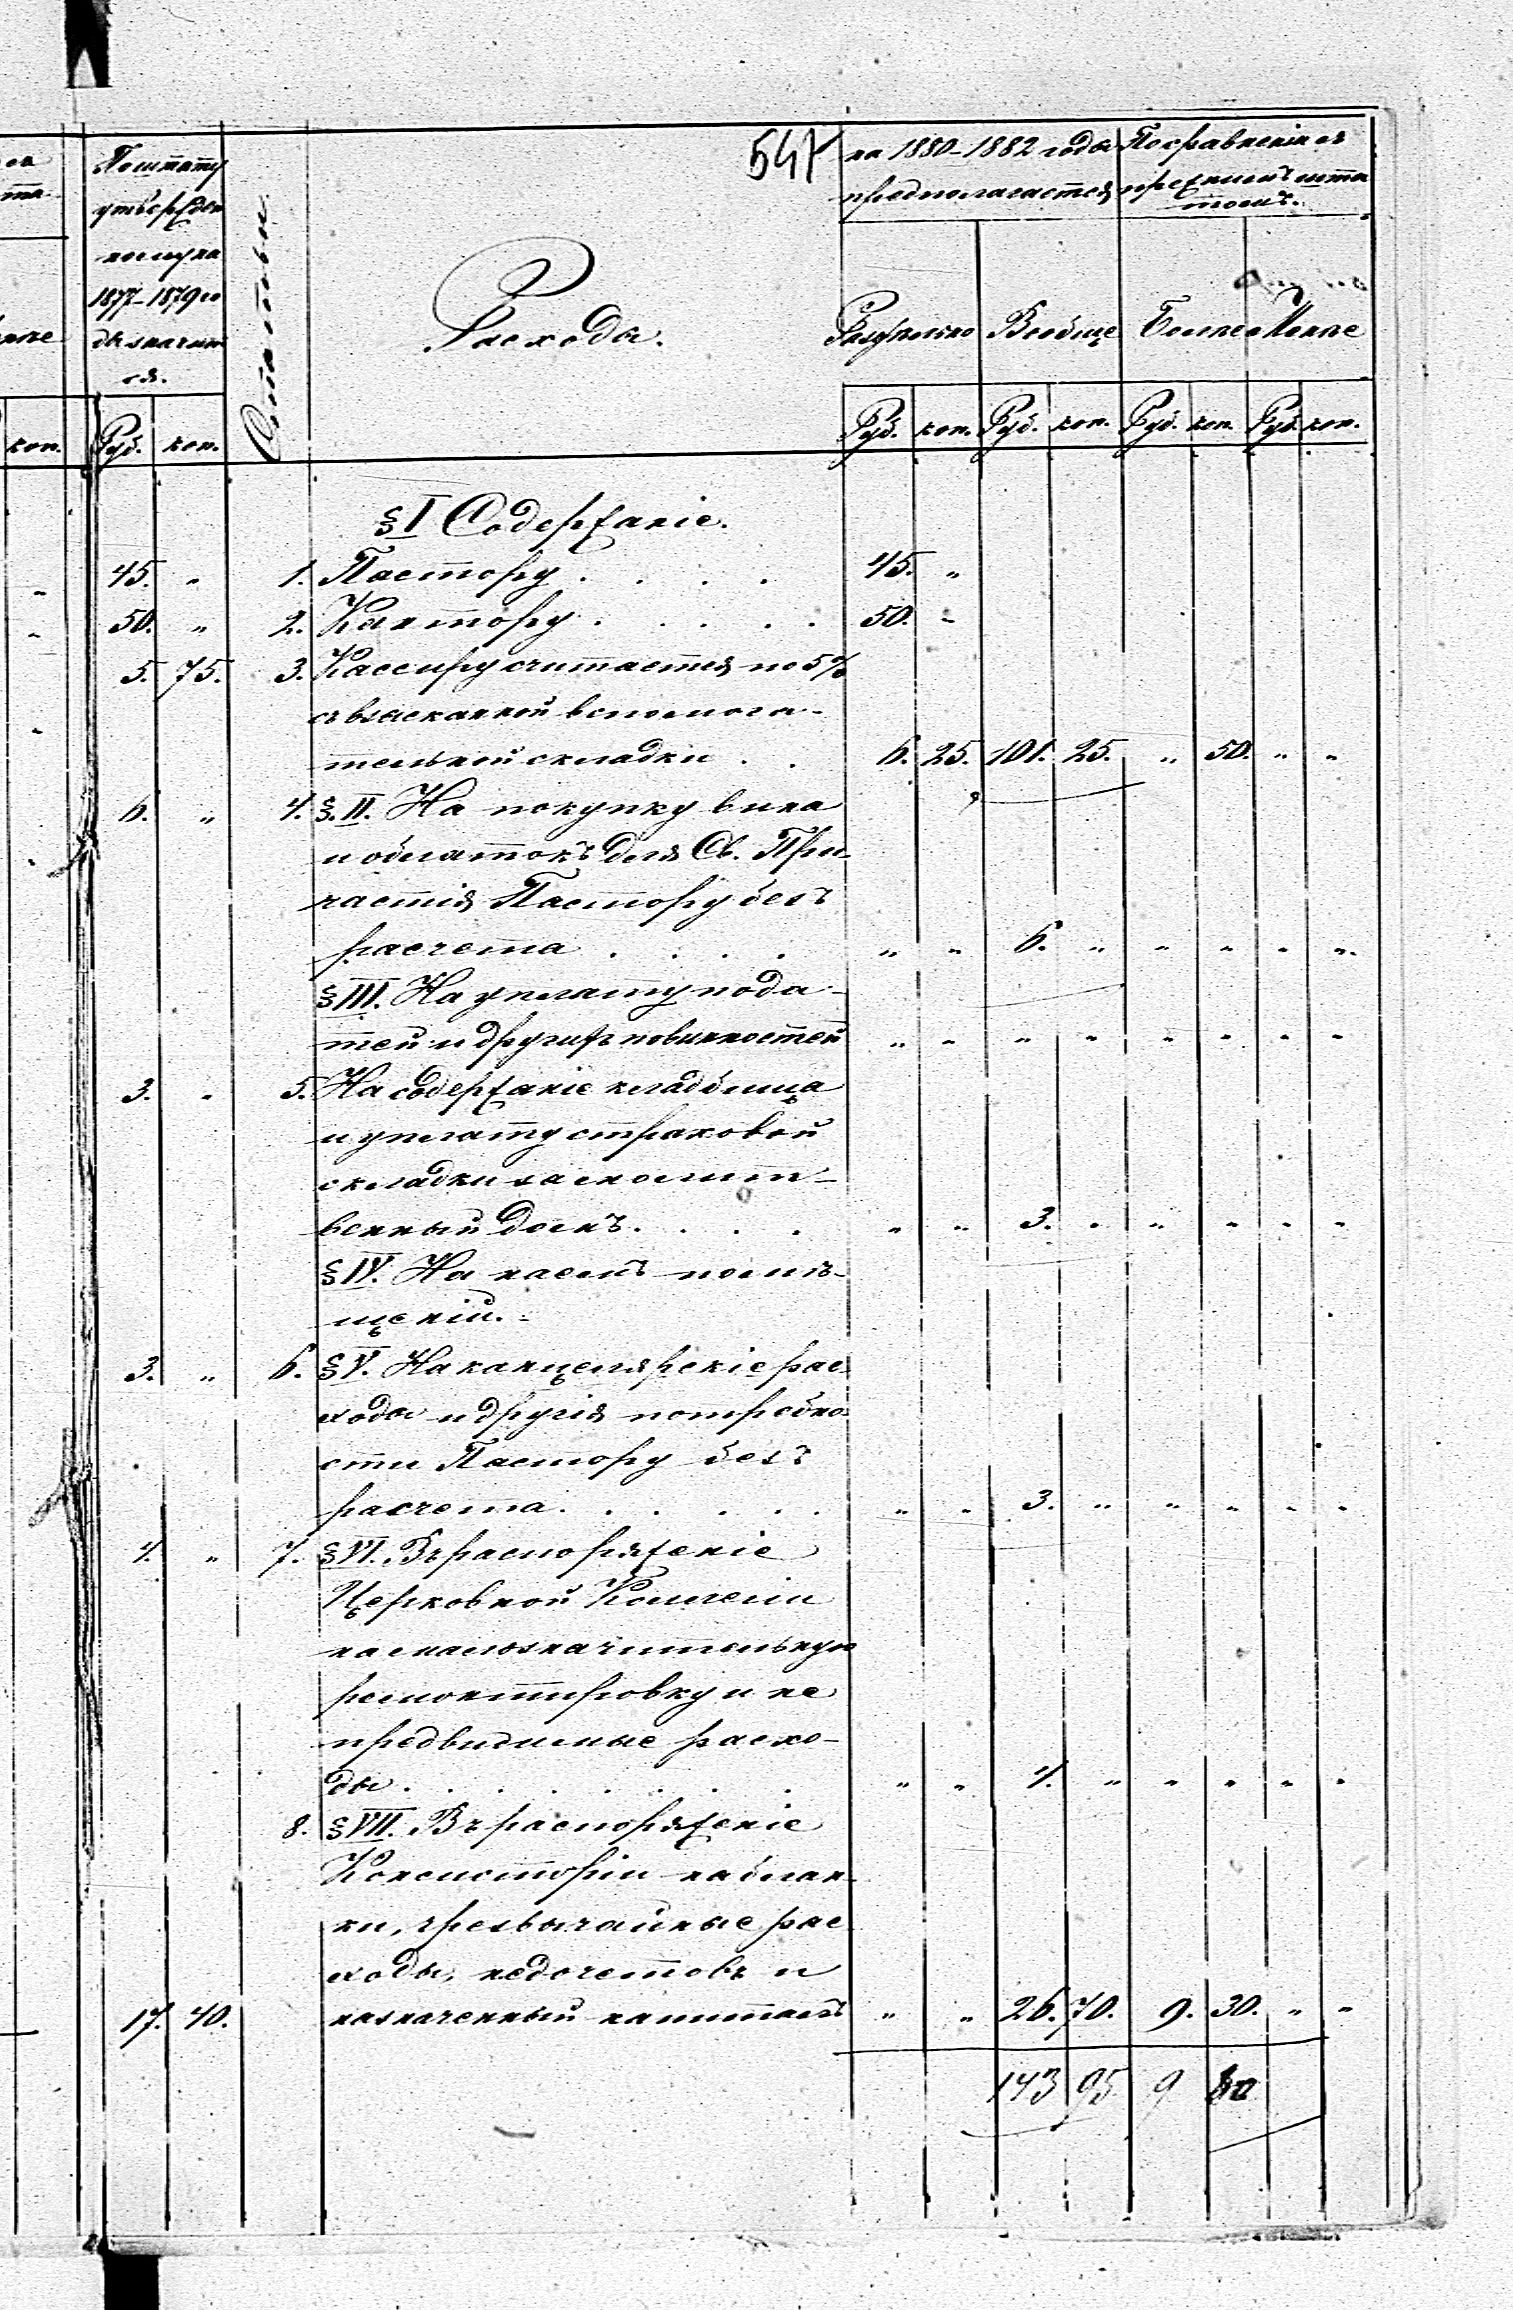 547
По штату
утвержден
ному на
1877-1879 го
ды значит
ся.
Статьи
Расходы.
на 1880-1882 годы
предполагается
По сравненію съ
прежнимъ шта
томъ.
Раздѣльно Вообще Более Менее
коп. Руб. коп. Руб. коп. Руб. коп. Руб. коп. Руб. коп.
§ I Содержаніе.
45. „ 1. Пастору . . . . 45. „
50. „ 2. Кантору . . . . . 50. „
5. 75. 3. Кассиру считается по 5%
съ взысканной вспомога-
тельной складки . . 6. 25. 101. 25. „ 50. „ „
6. „ 4. §. II. На покупку вина
и облатокъ для Св. При-
частія Пастору безъ
расчета . . . . „ „ 6. „ „ „ „ „
§ III. На уплату пода-
тей и другихъ повинностей „ „ „ „ „ „ „ „
3. „ 5. На содержаніе кладбища
и уплату страховой
складки за молит-
венный домъ. . . . „ „ 3. „ „ „ „ „
§ IV. На наемъ помѣ-
щеній.
3. „ 6. § V. На канцелярскіе рас
ходы и другія потребно-
сти Пастору безъ
расчета. . . . . . „ „ 3. „ „ „ „ „
4. „ 7. § VI. Въ распоряженіе
Церковной Коллегіи
на малозначительную
ремонтировку и не
предвидимые расхо-
ды . . . . . . . „ „ 4. „ „ „ „ „
8. § VII. Въ распоряженіе
Консисторіи на блан-
ки, чрезвычайные рас
ходы, недочетовъ и
17. 40. назначенный капиталъ „ „ 26. 70. 9. 30. „ „
143 95 9 80